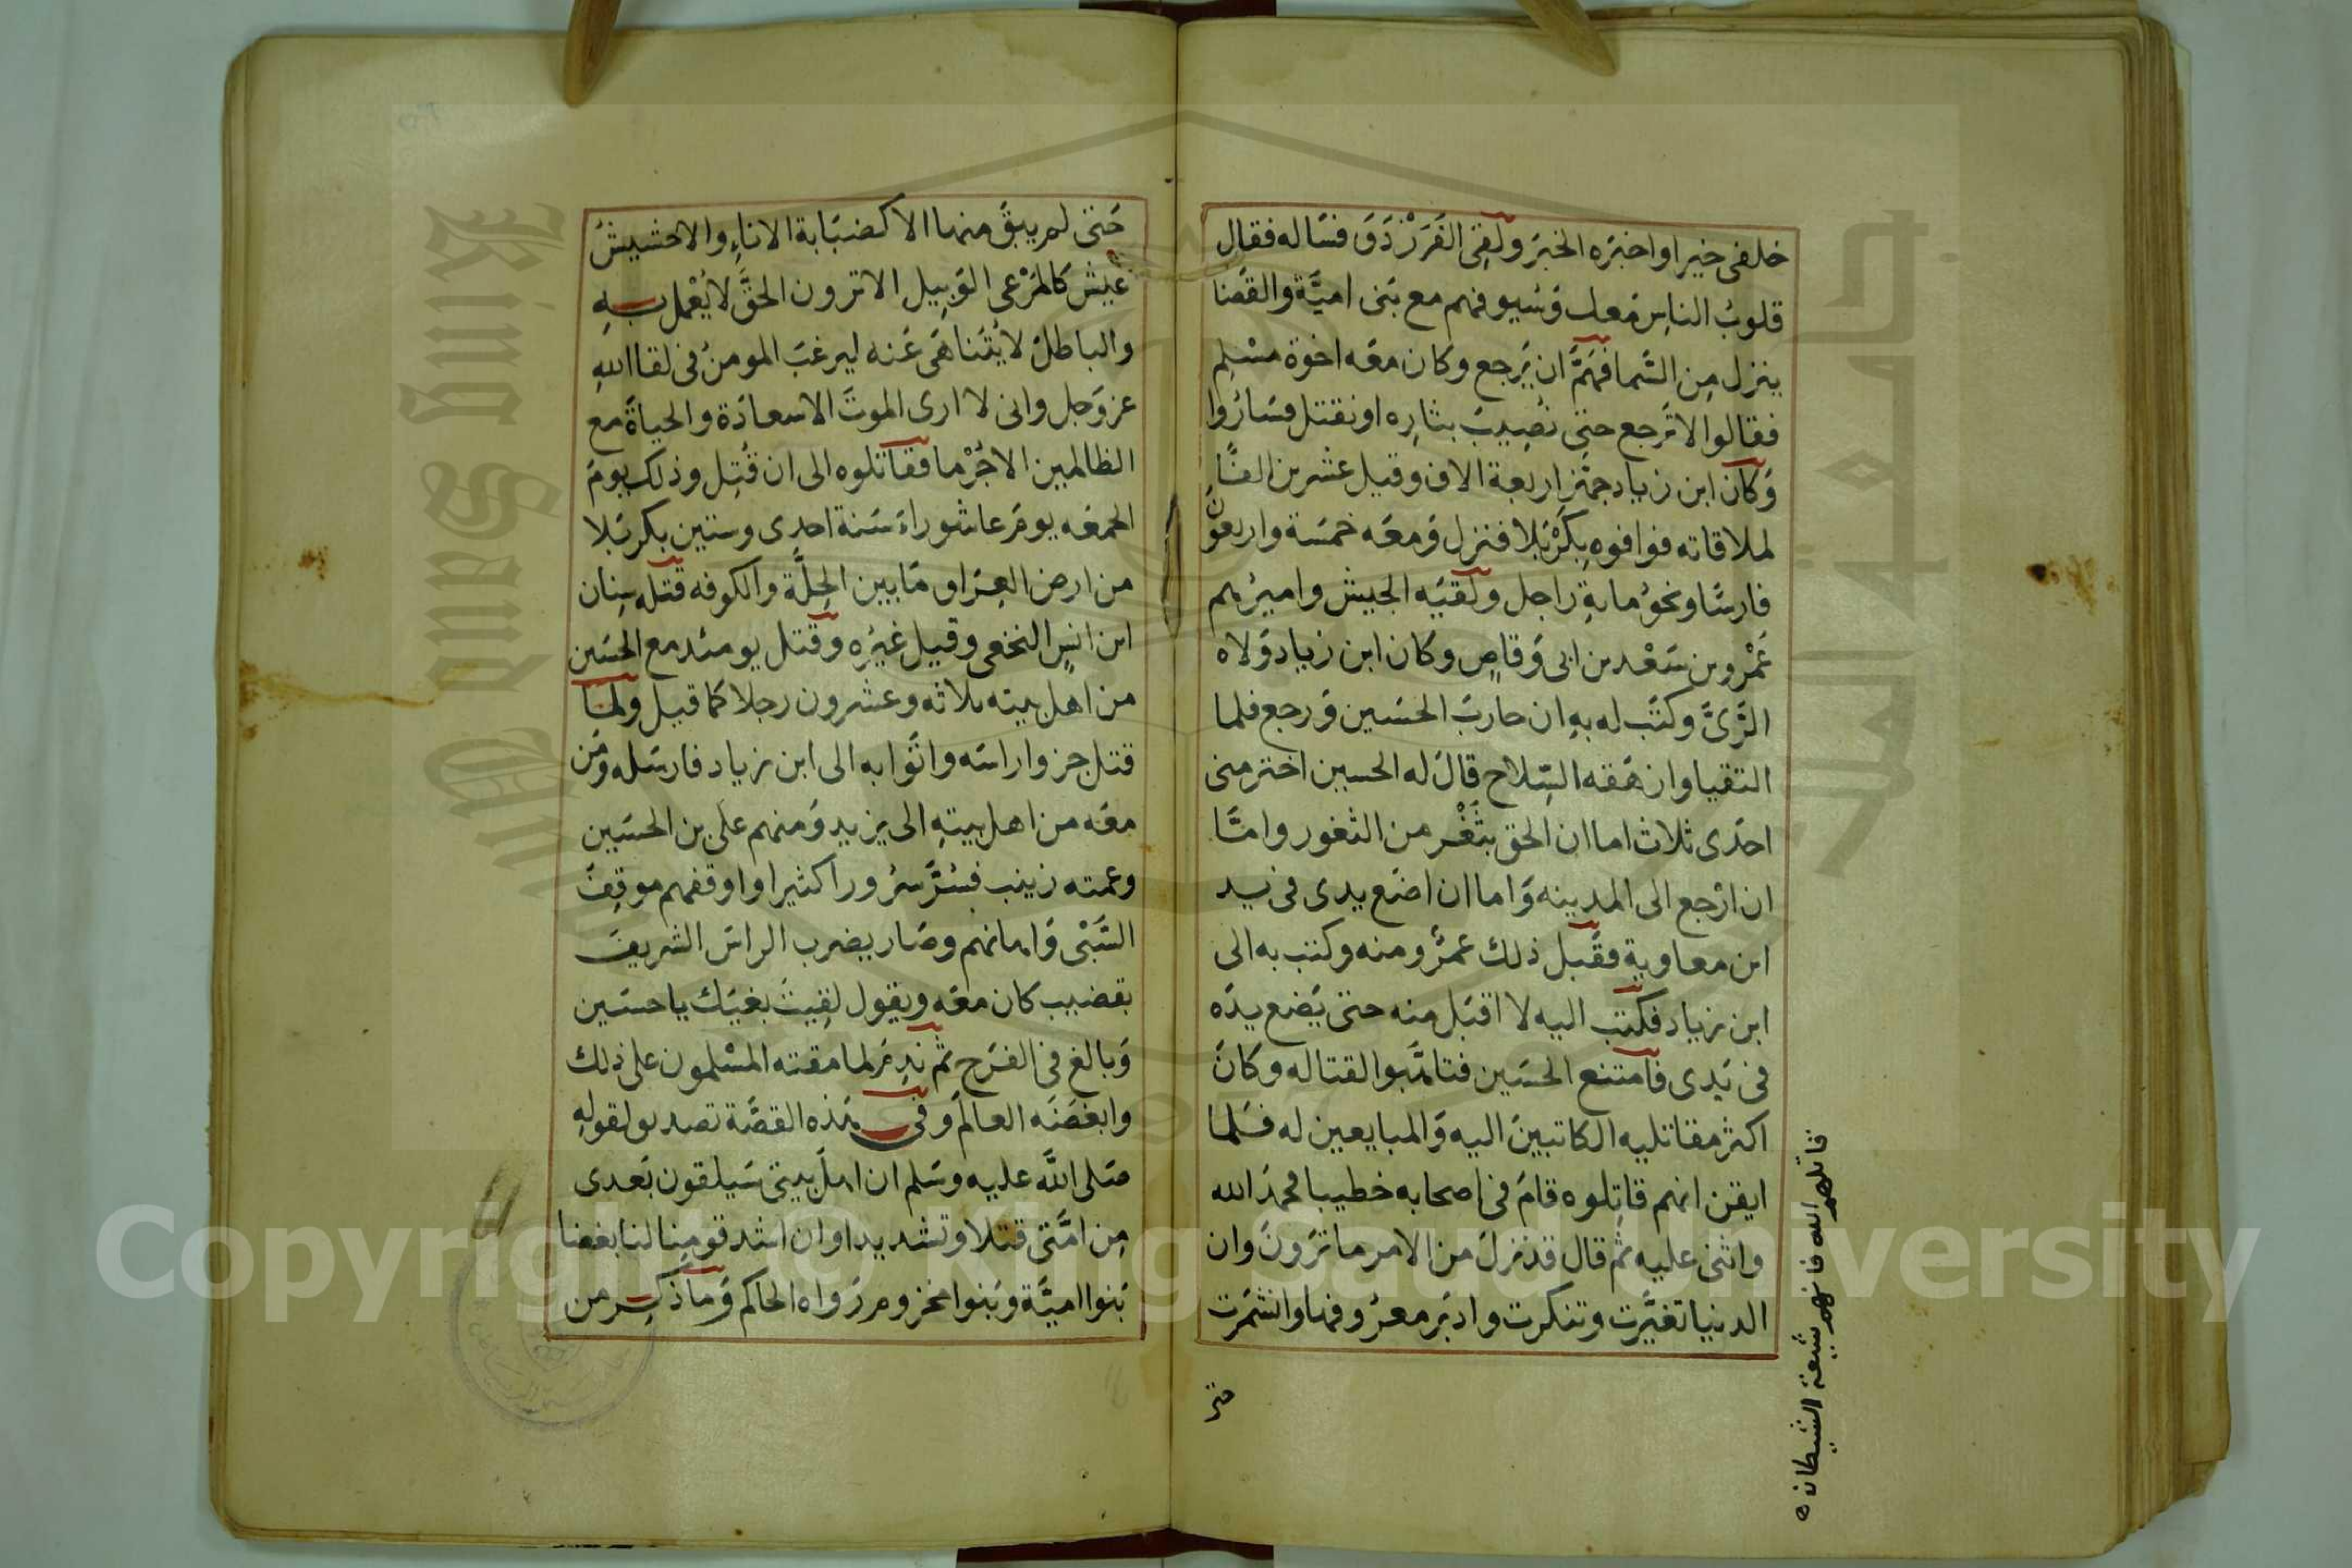 خلفى خيرا واخبَره الخبرَ ولَقِىَ الفَرَزْدَقَ فسَاله فقال
قلوبُ الناسِ مَعك وَسُيوفهم مع بَنى اميَّة والقضا
ينزل مِن السَّما فهَمَّ ان يَرجع وكان معَه اخوة مسْلِم
فقالوا لا ترجع حتى نُصِيبَ بثارِه او نقتتل فسَارُوا
وَكان ابن زياد جهّز اربعة الاف وقيل عشرين الفًا
لملاقاته فوافوه بِكَرْبَلا فنزل وَمعَه خمسَة واربعونَ
فارسًا ونحوُ ماية راجل ولَقيَه الجيش واميرُهم
عَمْرو بن سَعْد بن ابى وَقاصٍ وكان ابن زياد وَلاه
الرَّىَّ وكتَب له بهِ ان حاربَ الحسَين وَرجع فلما
التقيا وارهقه السِّلاح قالَ له الحسين اختر منى
احدَى ثلاث اما ان الحق بثَغْر من الثغور وامَّا
ان ارْجع الى المدينه وَاما ان اضَع يدى فى يد
ابن معاوية فقَبل ذلك عمرُو منه وكتب به الى
ابن زياد فكتب اليه لا اقبَل منه حتى يَضع يدَه
فى يَدِى فامتنع الحسَين فتاهَّبوا لقتاله وكانَ
اكثرُ مقاتليه الكاتبينَ اليه وَالمبايعين له فلما
ايقن انهم قاتِلوه قامَ فى اصحابه خطيبا فحمدَ الله
واثنى عليه ثم قال قد نزلَ من الامر ما تَرَونَ وان
الدنيا تغيَّرت وتنكرت وادبَر معرُوفها وانشمَرت
حتى
قاتلهم الله فانهم شيعة الشيطان ه
حَتى لم يبقَ منها الا كصُبَابة الاناءِ والاخشيشُ
عَيش كالمَرْعى الوَبِيل الا ترون الحقَّ لا يُعْمل بهِ
والباطلَ لا يُتَناهَى عَنه ليرغبَ المومنُ فى لقا اللهِ
عز وَجل وانى لا ارى الموتَ الا سعادَة والحياةَ مع
الظالمين الا جُرْما فقاتلوه الى ان قُتِل وذلك يومَ
الجمعَه يومَ عاشوراءَ سَنة احدى وستين بكربَلا
من ارض العِرَاق مَا بين الحِلَّة والكوفه قتله سِنان
ابن انسٍ النخعى وقيل غيرُه وقُتل يومئد مع الحسَين
من اهل بيته ثلاثه وعشرون رجلا كما قيل ولمَّا
قتل جزوا راسَه واتَوا به الى ابن زياد فارسَله ومَن
معَه من اهل بيتهِ الى يزيد وَمنهم على بن الحسَين
وعمته زينب فسُرَّ سُرُورا كثيرا واوقفهم موقِفَ
السَّبْى وَاهانهم وصَار يضرب الراسَ الشريفَ
بقضيب كان معَه ويقول لقيتَ بغيَك ياحسَين
وَبالغ فى الفرَح ثم ندِمَ لما مقته المسْلمون على ذلك
وابغضَه العالمَ وفى هَذه القصَّة تصديق لقولهِ
صَلى اللهُ عليه وسَلم ان اهلَ بيتى سَيلقون بَعدى
مِن امَّتى قتلا وتشديدا وان اشد قومِنا لنا بغضا
بَنوا اميَّة وبَنوا مخزوم رَوَاه الحاكم وَما ذكر من